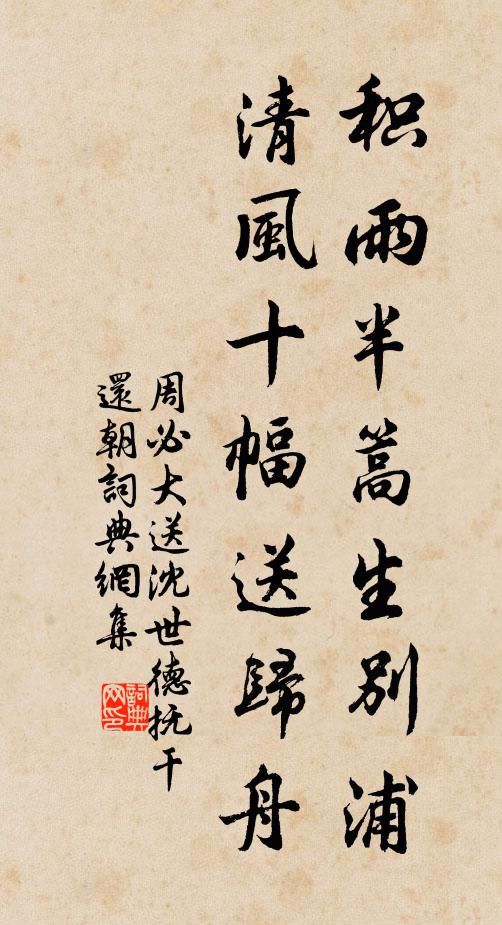 积雨半篙生別浦
清風十幅送歸舟
周必大送沈世德抚干
還朝詞典網集
詞典
网印